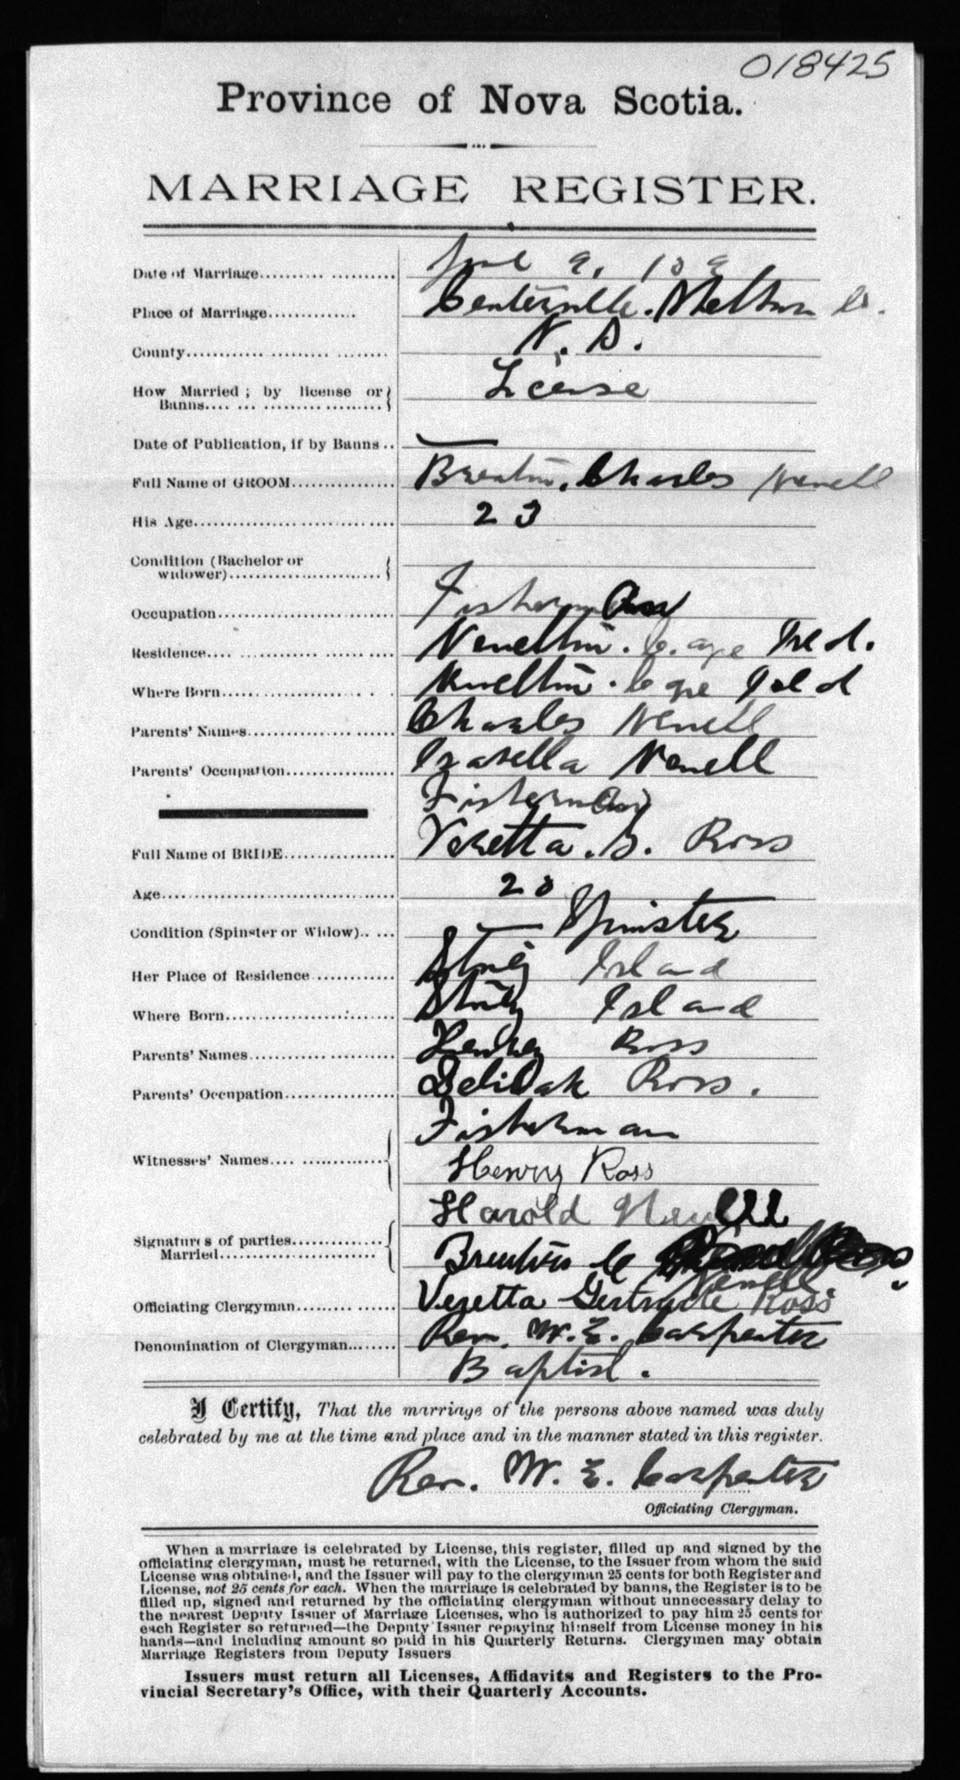 018425
Province of Nova Scotia.
MARRIAGE REGISTER.
Date of Marriage.......... .......... 9,
Place of Marriage.............. Centerville.
County........... ........ ........ N. S.
How Married ; by license or License
Banns.... ... .......... .........
Date of Publication, if by Banns ..
Full Name of GROOM............... Charles Newell
His Age.............................. 23
Condition (Bachelor or
widower)..........................
Occupation.......................... Fisherman
Residence.... .......... ...... ..... Isld.
Where Born........................ Isld
Parents' Names..................... Charles Newell
Parents' Occupation............... Izabella Newell
Fisherman
Full Name of BRIDE................ Vezetta. S. Ross
Age.................................. 20
Condition (Spinster or Widow).. ... Spinster
Her Place of Residence ........... Island
Where Born........................ Island
Parents' Names..................... Ross
Parents' Occupation............... Ross.
Fisherman
Witnesses' Names.... .............. Henry Ross
Harold Newell
Signatures of parties..............
Married........................ C Newell
Officiating Clergyman......... ..... Vezetta Gertrude Ross
Denomination of Clergyman........ Rev. W. E. Carpenter
Baptist.
I Certify, That the marriage of the persons above named was duly
celebrated by me at the time and place and in the manner stated in this register.
Rev. W. E. Carpenter
Officiating Clergyman.
When a marriage is celebrated by License, this register, filled up and signed by the
officiating clergyman, must be returned, with the License, to the Issuer from whom the said
License was obtained, and the Issuer will pay to the clergyman 25 cents for both Register and
License, not 25 cents for each. When the marriage is celebrated by banns, the Register is to be
filled up, signed and returned by the officiating clergyman without unnecessary delay to
the nearest Deputy Issuer of Marriage Licenses, who is authorized to pay him 25 cents for
each Register so returned—the Deputy Issuer repaying himself from License money in his
hands—and including amount so paid in his Quarterly Returns. Clergymen may obtain
Marriage Registers from Deputy Issuers
Issuers must return all Licenses, Affidavits and Registers to the Pro-
vincial Secretary's Office, with their Quarterly Accounts.